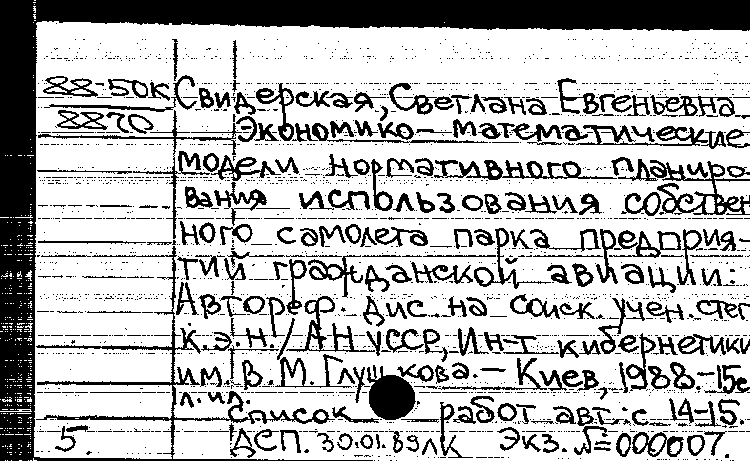 88-50К Свидерская, Светлана Евгеньевна
8870
Экономико-математические
модели нормативного планиро-
вания использования собствен
ного самолета парка предприя-
тий гражданской авиации:
Автореф. дис. на соиск. учен. степ
к.э.н. / АН УССР, Ин-т кибернетики
им. В.М. Глушкова. – Киев, 1988. – 15с
л. ил.
Список работ авт.: с 14-15.
5. ДСП. 30.01.89 ЛК Экз. № 000007.